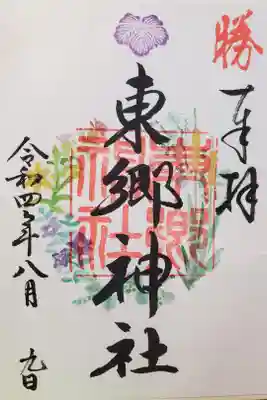 勝
奉拝
東郷神社
東郷神社
令和四年八月 九日